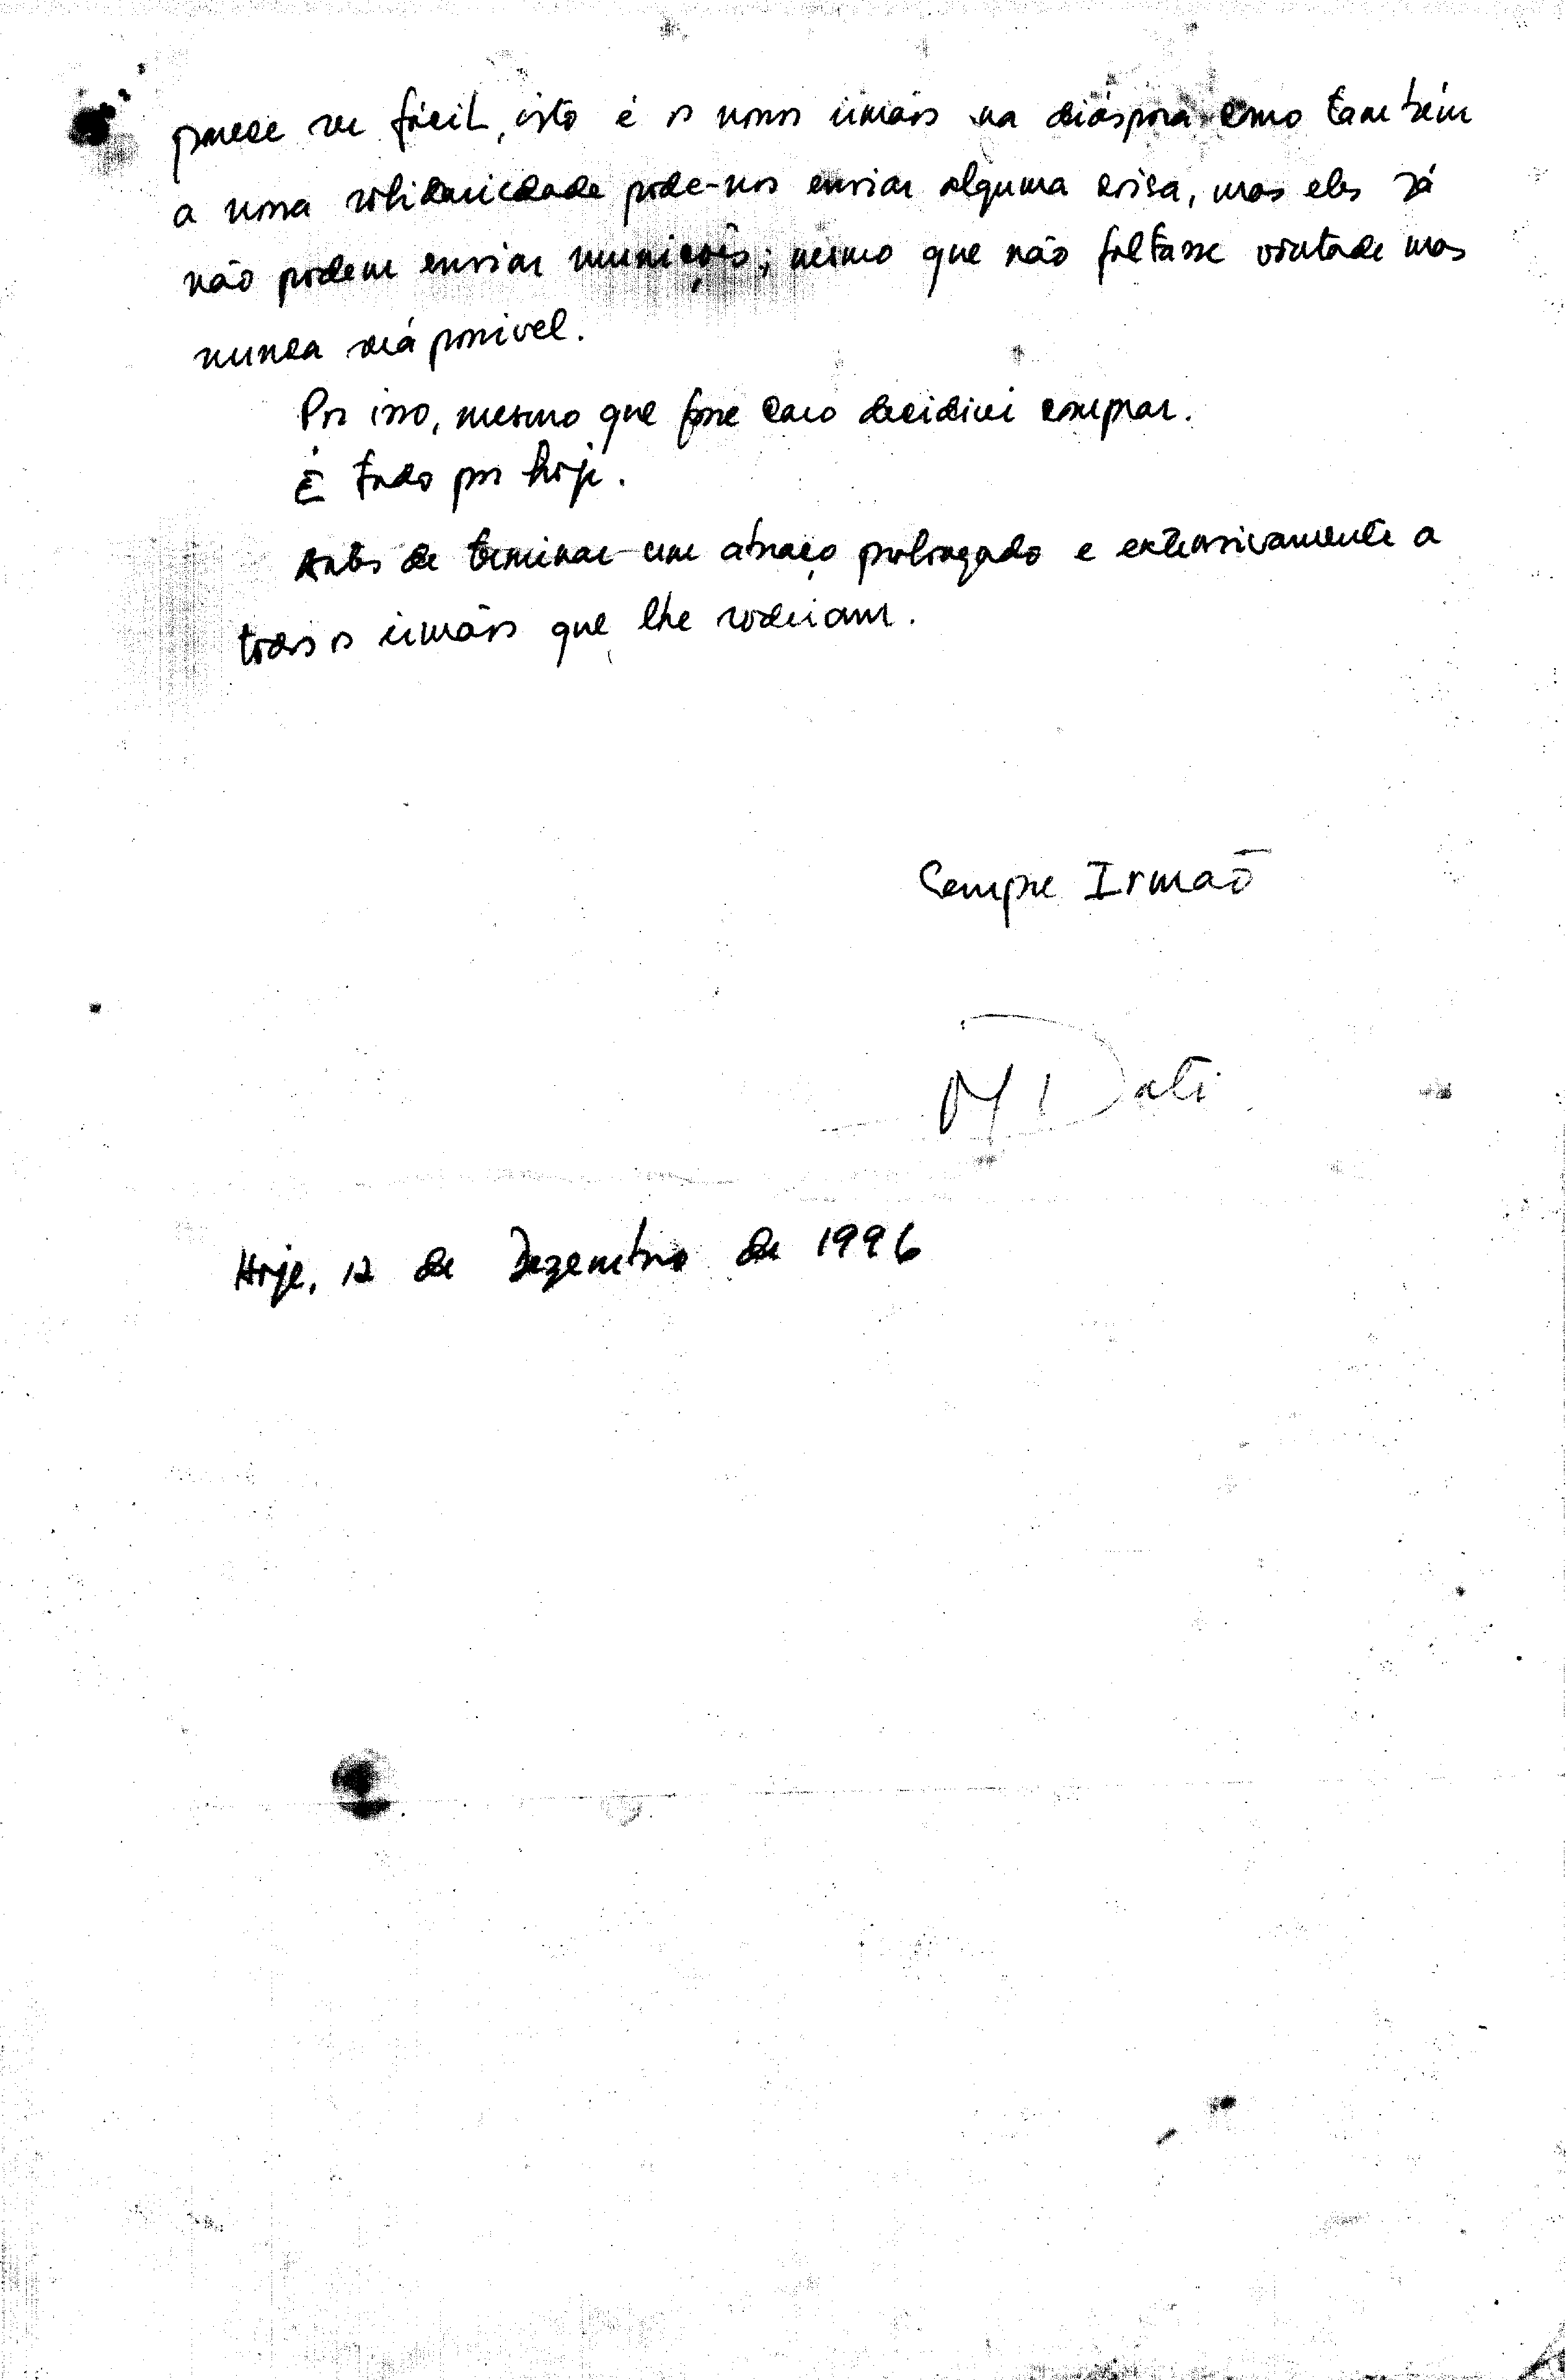 parece ser fácil, isto é os nossos irmãos na diáspora como também
a nossa solidariedade pode-nos enviar alguma coisa, mas eles já
não podem enviar munições; mesmo que não faltasse vontade mas
nunca será possivel.
Por isso, mesmo que fosse caro decidirei comprar.
É tudo por hoje.
Antes de terminar um abraço prolongado e extensivamente a
todos os irmãos que lhe rodeiam.
Sempre Irmão
M Dati
Hoje, 12 de Dezembro de 1996